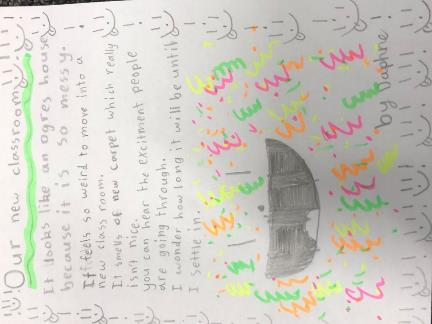 Our new classroom
It looks like an ogres house
because it is so messy.
It feels so weird to move into a
new class room.
It smells of new carpet which really
isn't nice.
you can hear the excitment people
are going through.
I wonder how long it will be until
I settle in.
by Daphne